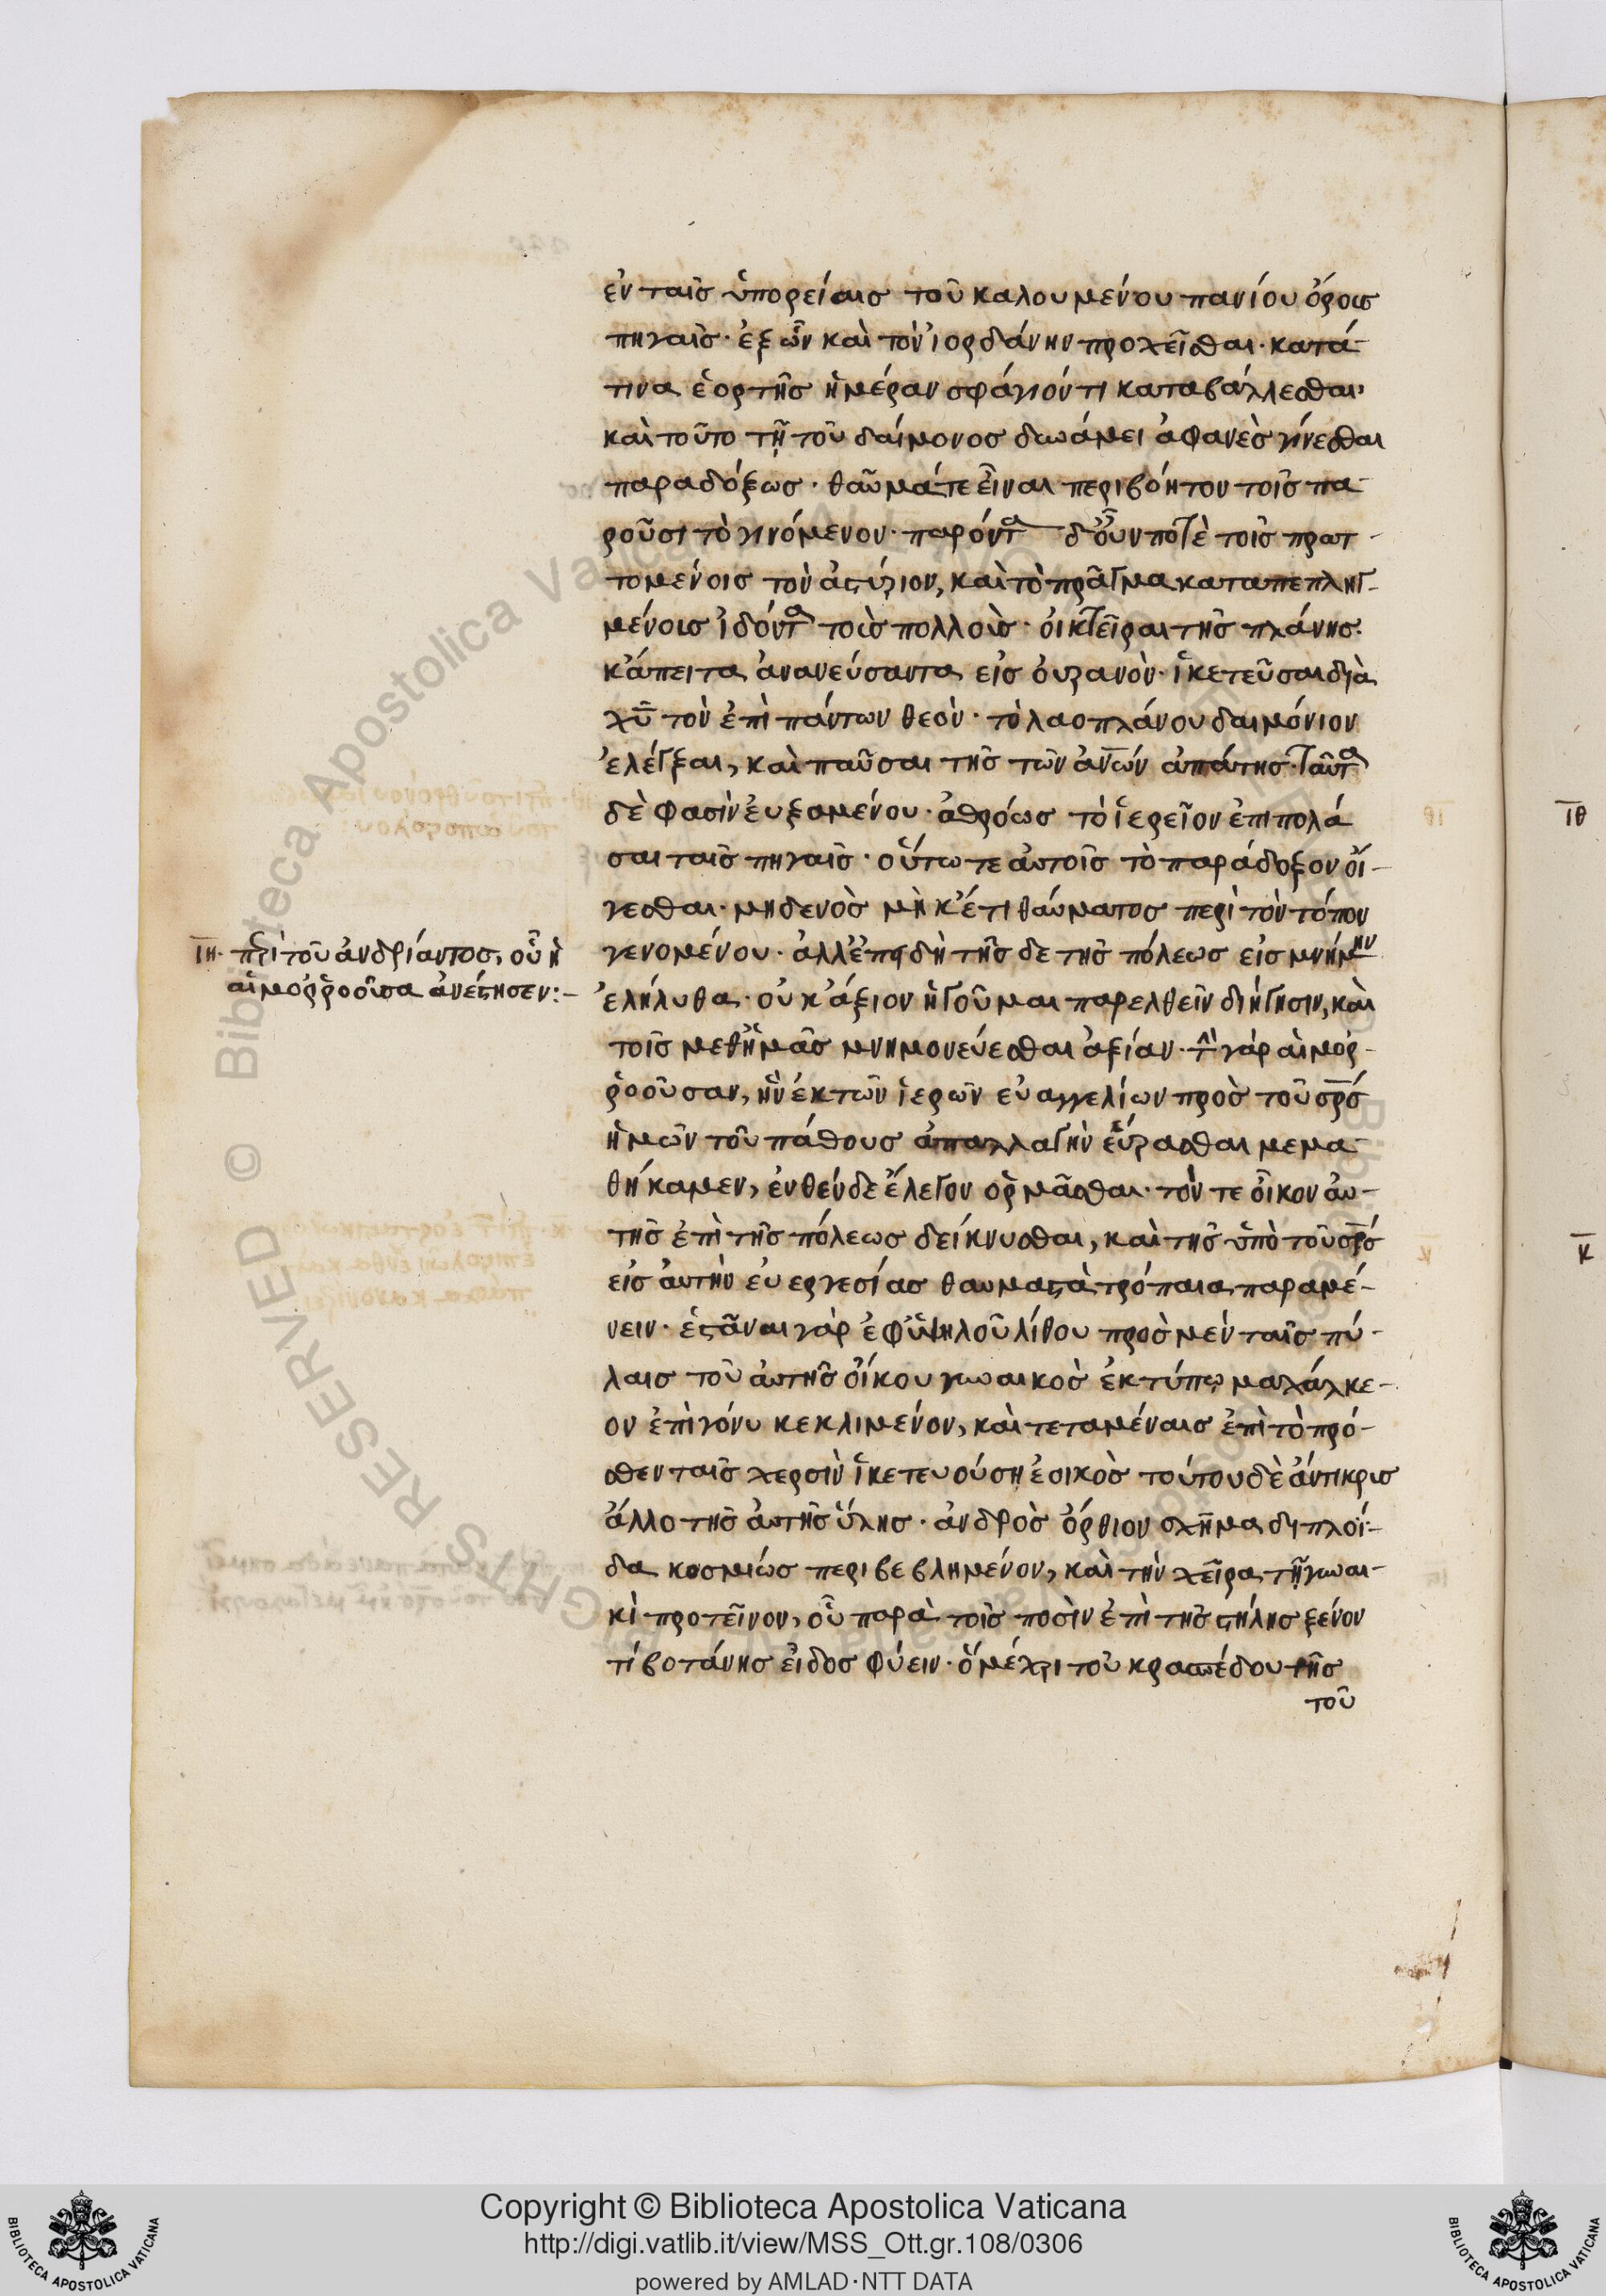 ἐν ταῖς ὑπορείαις τοῦ καλουμένου πανίου ὄρους
πηγαῖς· ἐξ ὧν καὶ τὸν ἰορδάνην προχεῖσθαι· κατά
τινα ἑορτῆς ἡμέραν σφάγιόντι καταβάλλεσθαι·
καὶ τοῦτο τῇ τοῦ δαίμονος δυνάμει ἀφανὲς γίνεσθαι
παραδόξως· θαῦμάτε εἶναι περιβόητον τοῖς πα-
ροῦσι τὸ γινόμενον· παρόντα δ' οὖν ποτὲ τοῖς πρατ-
τομένοις τὸν ἀστύριον, καὶ τὸ πρᾶγμα καταπεπληγ-
μένοις ἰδόντα τοὺς πολλοὺς· οἰκτεῖραι τῆς πλάνης·
κἄπειτα ἀνανεύσαντα εἰς οὐρανὸν· ἱκετεῦσαι διὰ
χῦ τὸν ἐπὶ πάντων θεὸν· τὸ λαοπλάνου δαιμόνιον
ἐλέγξαι, καὶ παῦσαι τῆς τῶν ἀνῶν ἀπάτης· ταῦτα
δὲ φασὶν εὐξαμένου· ἀθρόως τὸ ἱερεῖον ἐπιπολά
σαι ταῖς πηγαῖς· οὕτω τε αὐτοῖς τὸ παράδοξον οἴ-
χεσθαι· μηδενὸς μὴκέτι θαύματος περὶ τὸν τόπον
γενομένου· ἀλλ' ἐπειδὴ τῆς δε τῆς πόλεως εἰς μνήμην
ιη· περὶ τοῦ ἀνδριάντος, οὗ ἡ
αἱμορροοῦσα ἀνέστησεν:-
ἐλήλυθα· οὐκ ἄξιον ἡγοῦμαι παρελθεῖν διήγησιν, καὶ
τοῖς μεθ' ἡμᾶς μνημονεύεσθαι ἀξίαν· τὴν γὰρ αἱμορ-
ροοῦσαν, ἣν ἐκ τῶν ἱερῶν εὐαγγελίων πρὸς τοῦ σρς
ἡμῶν τοῦ πάθους ἀπαλλαγὴν εὕρασθαι μεμα-
θήκαμεν, ἐνθένδε ἔλεγον ὁρμᾶσθαι· τόν τε οἶκον αὐ-
τῆς ἐπὶ τῆς πόλεως δείκνυσθαι, καὶ τῆς ὑπὸ τοῦ σρς
εἰς αὐτὴν εὐεργεσίας θαυμαστὰ τρόπαια παραμέ-
νειν· ἑστᾶναι γὰρ ἐφ' ὑψηλοῦ λίθου πρὸς μὲν ταῖς πύ-
λαις τοῦ αὐτῆς οἴκου γυναικὸς ἐκτύπωμα χάλκε-
ον ἐπὶ γόνυ κεκλιμένον, καὶ τεταμέναις ἐπὶ τὸ πρό-
σθεν ταῖς χερσὶν ἱκετευούσῃ ἐοικὸς τούτου δὲ ἄντικρις
ἄλλο τῆς αὐτῆς ὕλης· ἀνδρὸς ὄρθιον σχῆμα διπλοΐ-
δα κοσμίως περιβεβλημένον, καὶ τὴν χεῖρα τῇ γυναι-
κὶ προτεῖνον, οὗ παρὰ τοῖς ποσὶν ἐπὶ τῆς στήλης ξένον
τί βοτάνης εἶδος φύειν· ὃ μέχρι τοῦ κρασπέδου τῆς
τοῦ
ιθ
κ
Copyright © Biblioteca Apostolica Vaticana
http://digi.vatlib.it/view/MSS_Ott.gr.108/0306
powered by AMLAD·NTT DATA